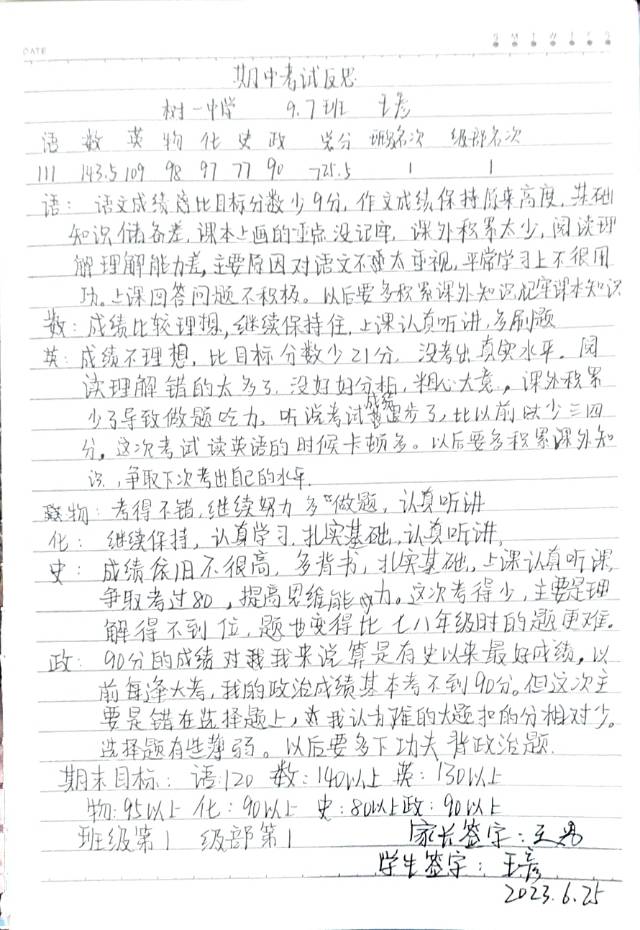 DATE
S M T W T F S
期中考试反思
树一中学 9.7班 王彦
语 数 英 物 化 史 政 总分 班级名次 级部名次
111 143.5 109 98 97 77 90 725.5 1 1
语: 语文成绩离比目标分数少9分,作文成绩保持原来高度,基础
知识储备差,课本上画的重点没记牢,课外积累太少,阅读理
解理解能力差,主要原因对语文不太重视,平常学习上不很用
功。上课回答问题不积极。以后要多积累课外知识,记牢课本知识
数: 成绩比较理想,继续保持住,上课认真听讲,多刷题
英: 成绩不理想,比目标分数少21分,没考出真实水平。阅
读理解错的太多了,没好好分析,粗心大意,课外积累
少了导致做题吃力,听说考试成绩退步了,比以前少三四
分,这次考试读英语的时候卡顿多。以后要多积累课外知
识,争取下次考出自己的水平.
物: 考得不错,继续努力多做题,认真听讲
化: 继续保持,认真学习,扎实基础,认真听讲,
史: 成绩依旧不很高,多背书,扎实基础,上课认真听课,
争取考过80,提高思维能力。这次考得少,主要是理
解得不到位,题也变得比七八年级时的题更难.
政: 90分的成绩对我来说算是有史以来最好成绩,以
前每逢大考,我的政治成绩基本考不到90分。但这次主
要是错在选择题上,我认为难的大题扣的分相对少。
选择题有些薄弱。以后要多下功夫背政治题.
期末目标: 语:120 数:140以上 英:130以上
物:95以上 化:90以上 史:80以上 政:90以上
班级第1 级部第1 家长签字:王
学生签字:王彦
2023.6.25